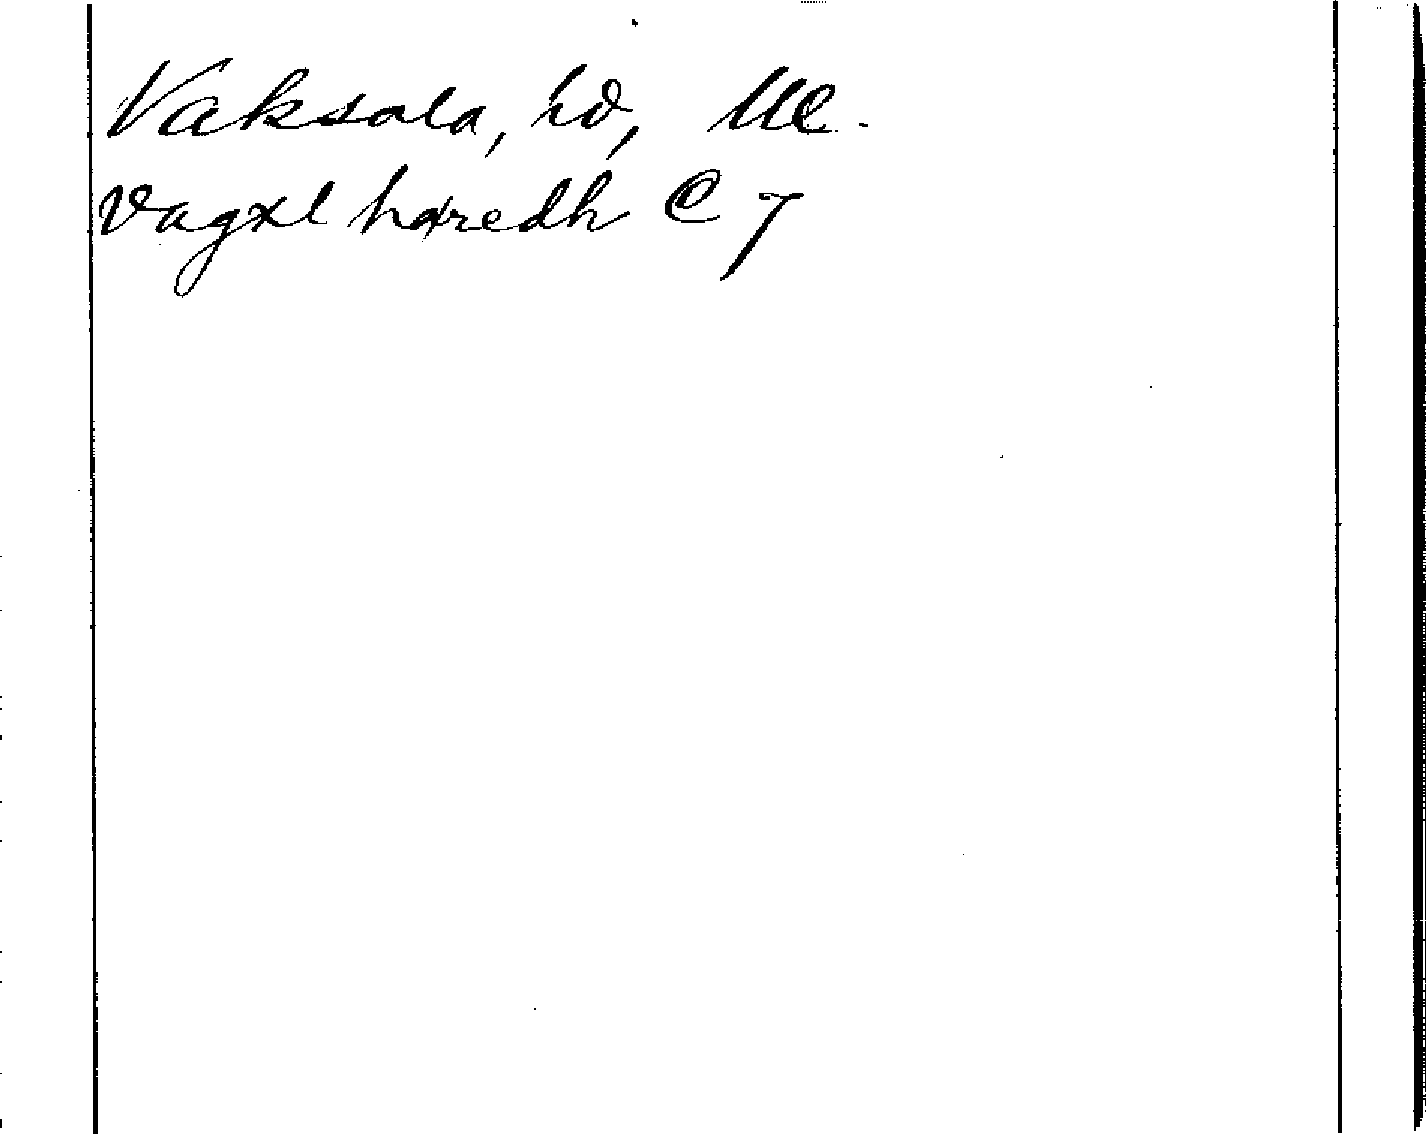 Vaksala, hd, Ul.
vagxl haredh C 7